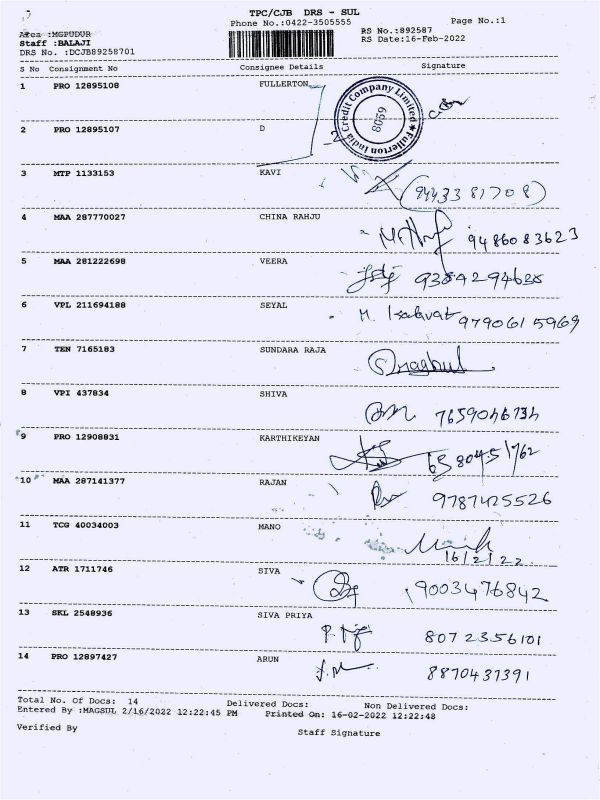 TPC/CJB DRS - SUL
Phone No.:0422-3505555
Page No.:1
Area :MGPUDUR
Staff :BALAJI
DRS No. :DCJB89258701
RS No.:892587
RS Date:16-Feb-2022
S No Consignment No Consignee Details Signature
1 PRO 12895108 FULLERTON
Fullerton India Credit Company Limited
8059
2 PRO 12895107 D
3 MTP 1133153 KAVI
4 MAA 287770027 CHINA RAHJU 9486083623
5 MAA 281222698 VEERA
6 VPL 211694188 SEYAL 9790615969
7 TEN 7165183 SUNDARA RAJA
8 VPI 437834 SHIVA
9 PRO 12908831 KARTHIKEYAN
10 MAA 287141377 RAJAN 9787425526
11 TCG 40034003 MANO
16/2/22
12 ATR 1711746 SIVA 9003476842
13 SKL 2548936 SIVA PRIYA 8072356101
14 PRO 12897427 ARUN 8870437391
Total No. Of Docs: 14 Delivered Docs: Non Delivered Docs:
Entered By :MAGSUL 2/16/2022 12:22:45 PM Printed On: 16-02-2022 12:22:48
Verified By Staff Signature